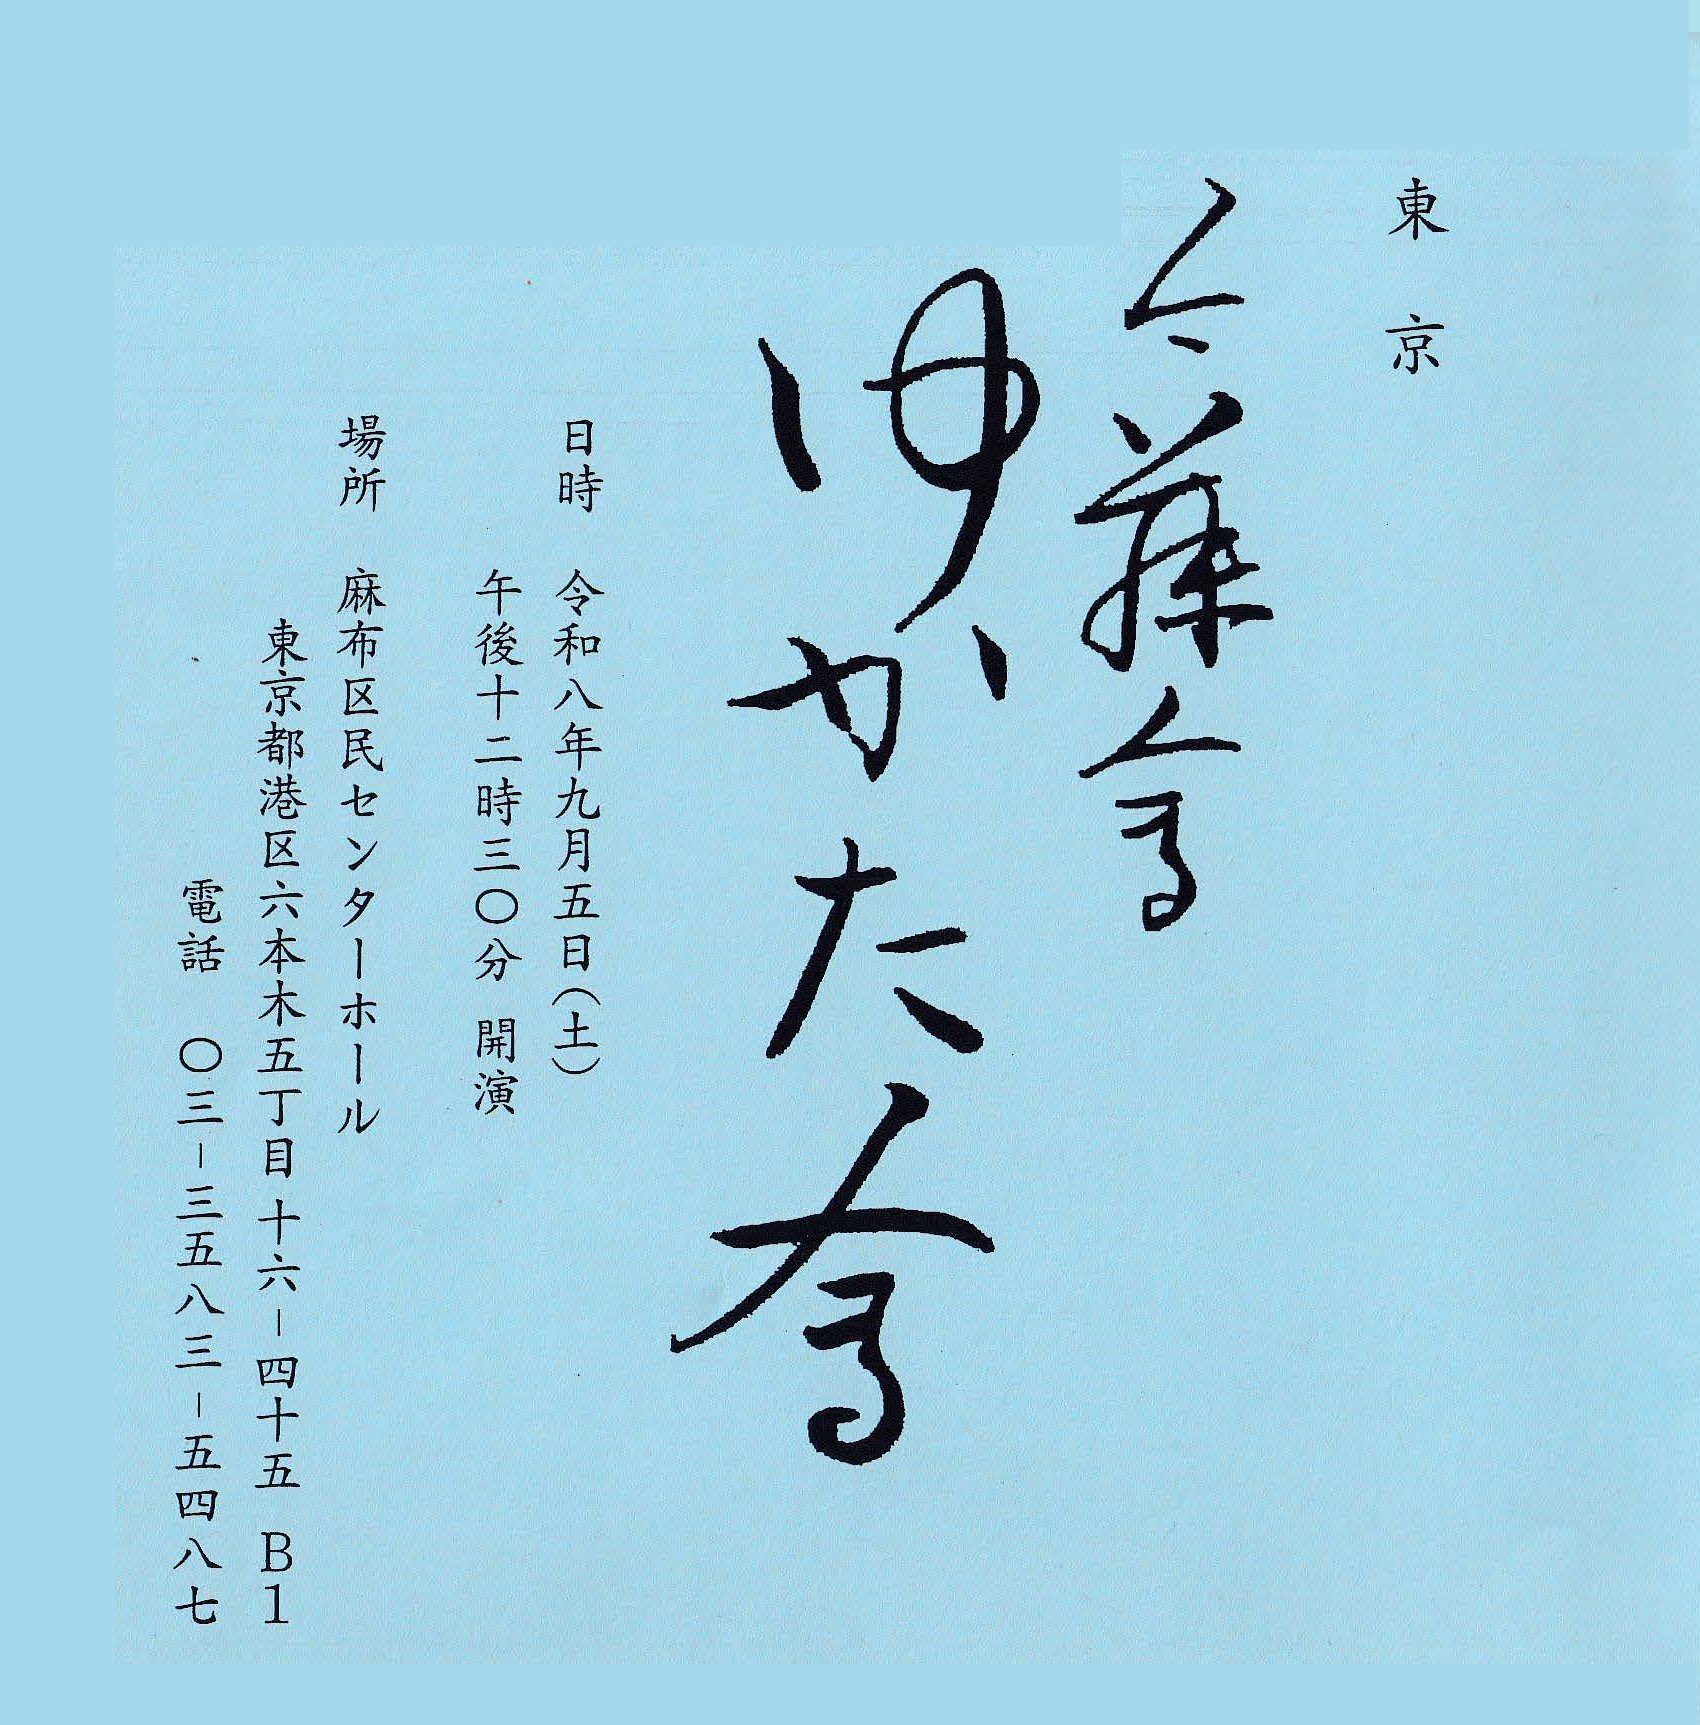 東京
今藤会
ゆかた会
日時 令和八年九月五日(土)
午後十二時三〇分 開演
場所 麻布区民センターホール
東京都港区六本木五丁目十六-四十五 B1
電話 〇三-三五八三-五四八七